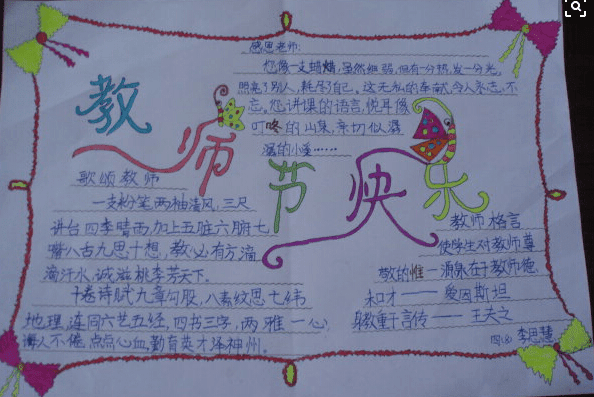 感恩老师:
您像一支蜡烛,虽然细弱,但有一分热,发一分光,
照亮了别人,耗尽了自己。这无私的奉献,令人永志不
忘。您讲课的语言,悦耳像
叮咚的山泉,亲切似潺
潺的小溪……
教师节快乐
歌颂教师
一支粉笔两袖清风,三尺
讲台四季晴雨,加上五脏六腑七
嘴八舌九思十想,教必有方,滴
滴汗水,诚滋桃李芳天下。
十卷诗赋九章勾股,八索文思七纬
地理,连同六艺五经,四书三字,两雅一心,
诲人不倦,点点心血,勤育英才泽神州。
教师格言
使学生对教师尊
敬的惟一源泉在于教师德
和才——爱因斯坦
身教重于言传——王夫之
四(8) 李思慧